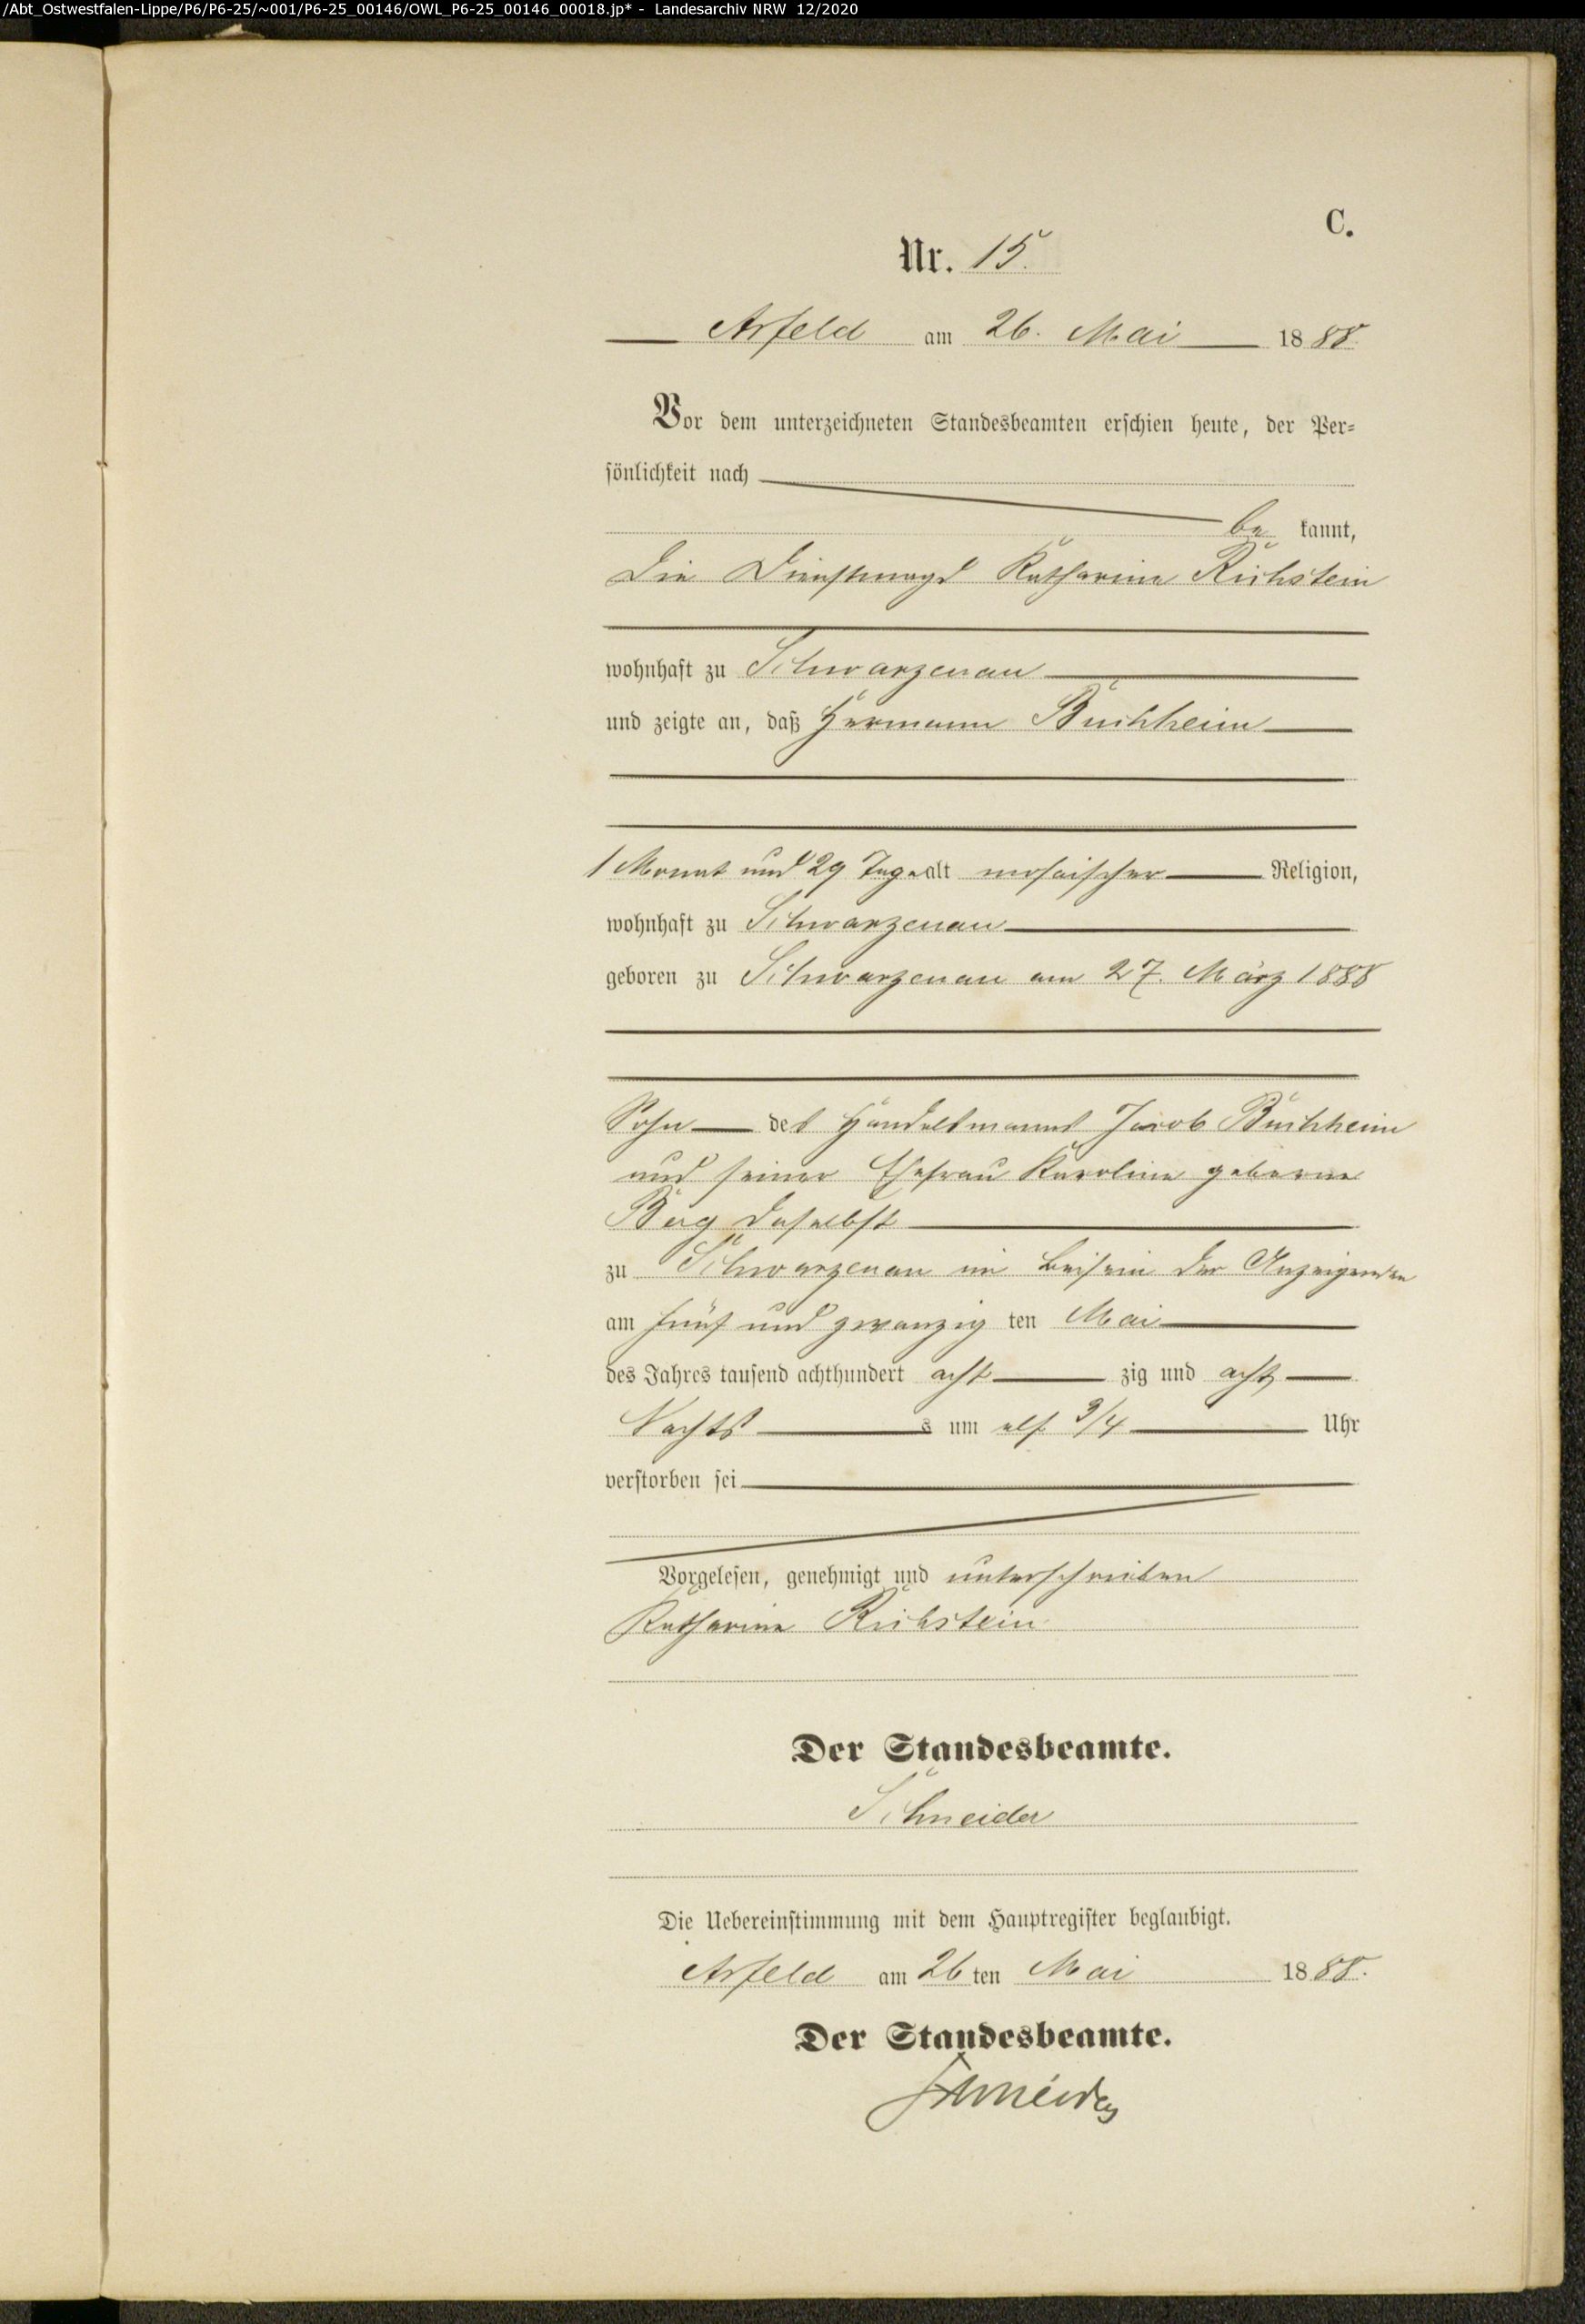 /Abt_Ostwestfalen-Lippe/P6/P6-25/~001/P6-25_00146/OWL_P6-25_00146_00018.jp* - Landesarchiv NRW 12/2020
C.
Nr. 15.
Arfeld am 26. Mai 1888.
Vor dem unterzeichneten Standesbeamten erschien heute, der Per-
sönlichkeit nach
be kannt,
die Dienstmagd Katharine Richstein
wohnhaft zu Schwarzenau
und zeigte an, daß Hermann Buchheim
1 Monat und 29 Tage alt mosaischer Religion,
wohnhaft zu Schwarzenau
geboren zu Schwarzenau am 27. März 1888
Sohn des Handelsmanns Jacob Buchheim
und seiner Ehefrau Karoline geborne
daselbst
zu Schwarzenau im Beisein der Anzeigenden
am fünf und zwanzig ten Mai
des Jahres tausend achthundert acht zig und acht
Nachts s um elf 3/4 Uhr
verstorben sei
Vorgelesen, genehmigt und unterschrieben
Katharine Richstein
Der Standesbeamte.
Schneider
Die Uebereinstimmung mit dem Hauptregister beglaubigt.
Arfeld am 26 ten Mai 1888.
Der Standesbeamte.
Schneider